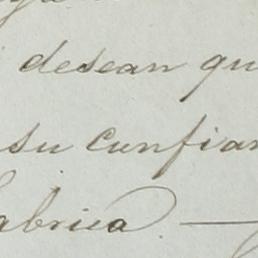 desean qu
su cunfian
fabrica. —